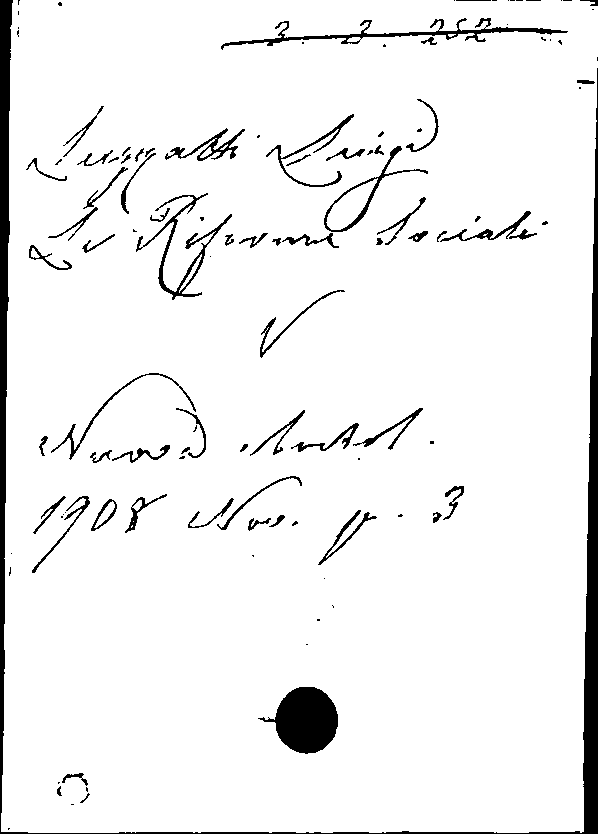 3. 3. 252
Luzzatti Luigi
Le Riforme Sociali
V
Nuova Antol.
1908 Nov. p. 3